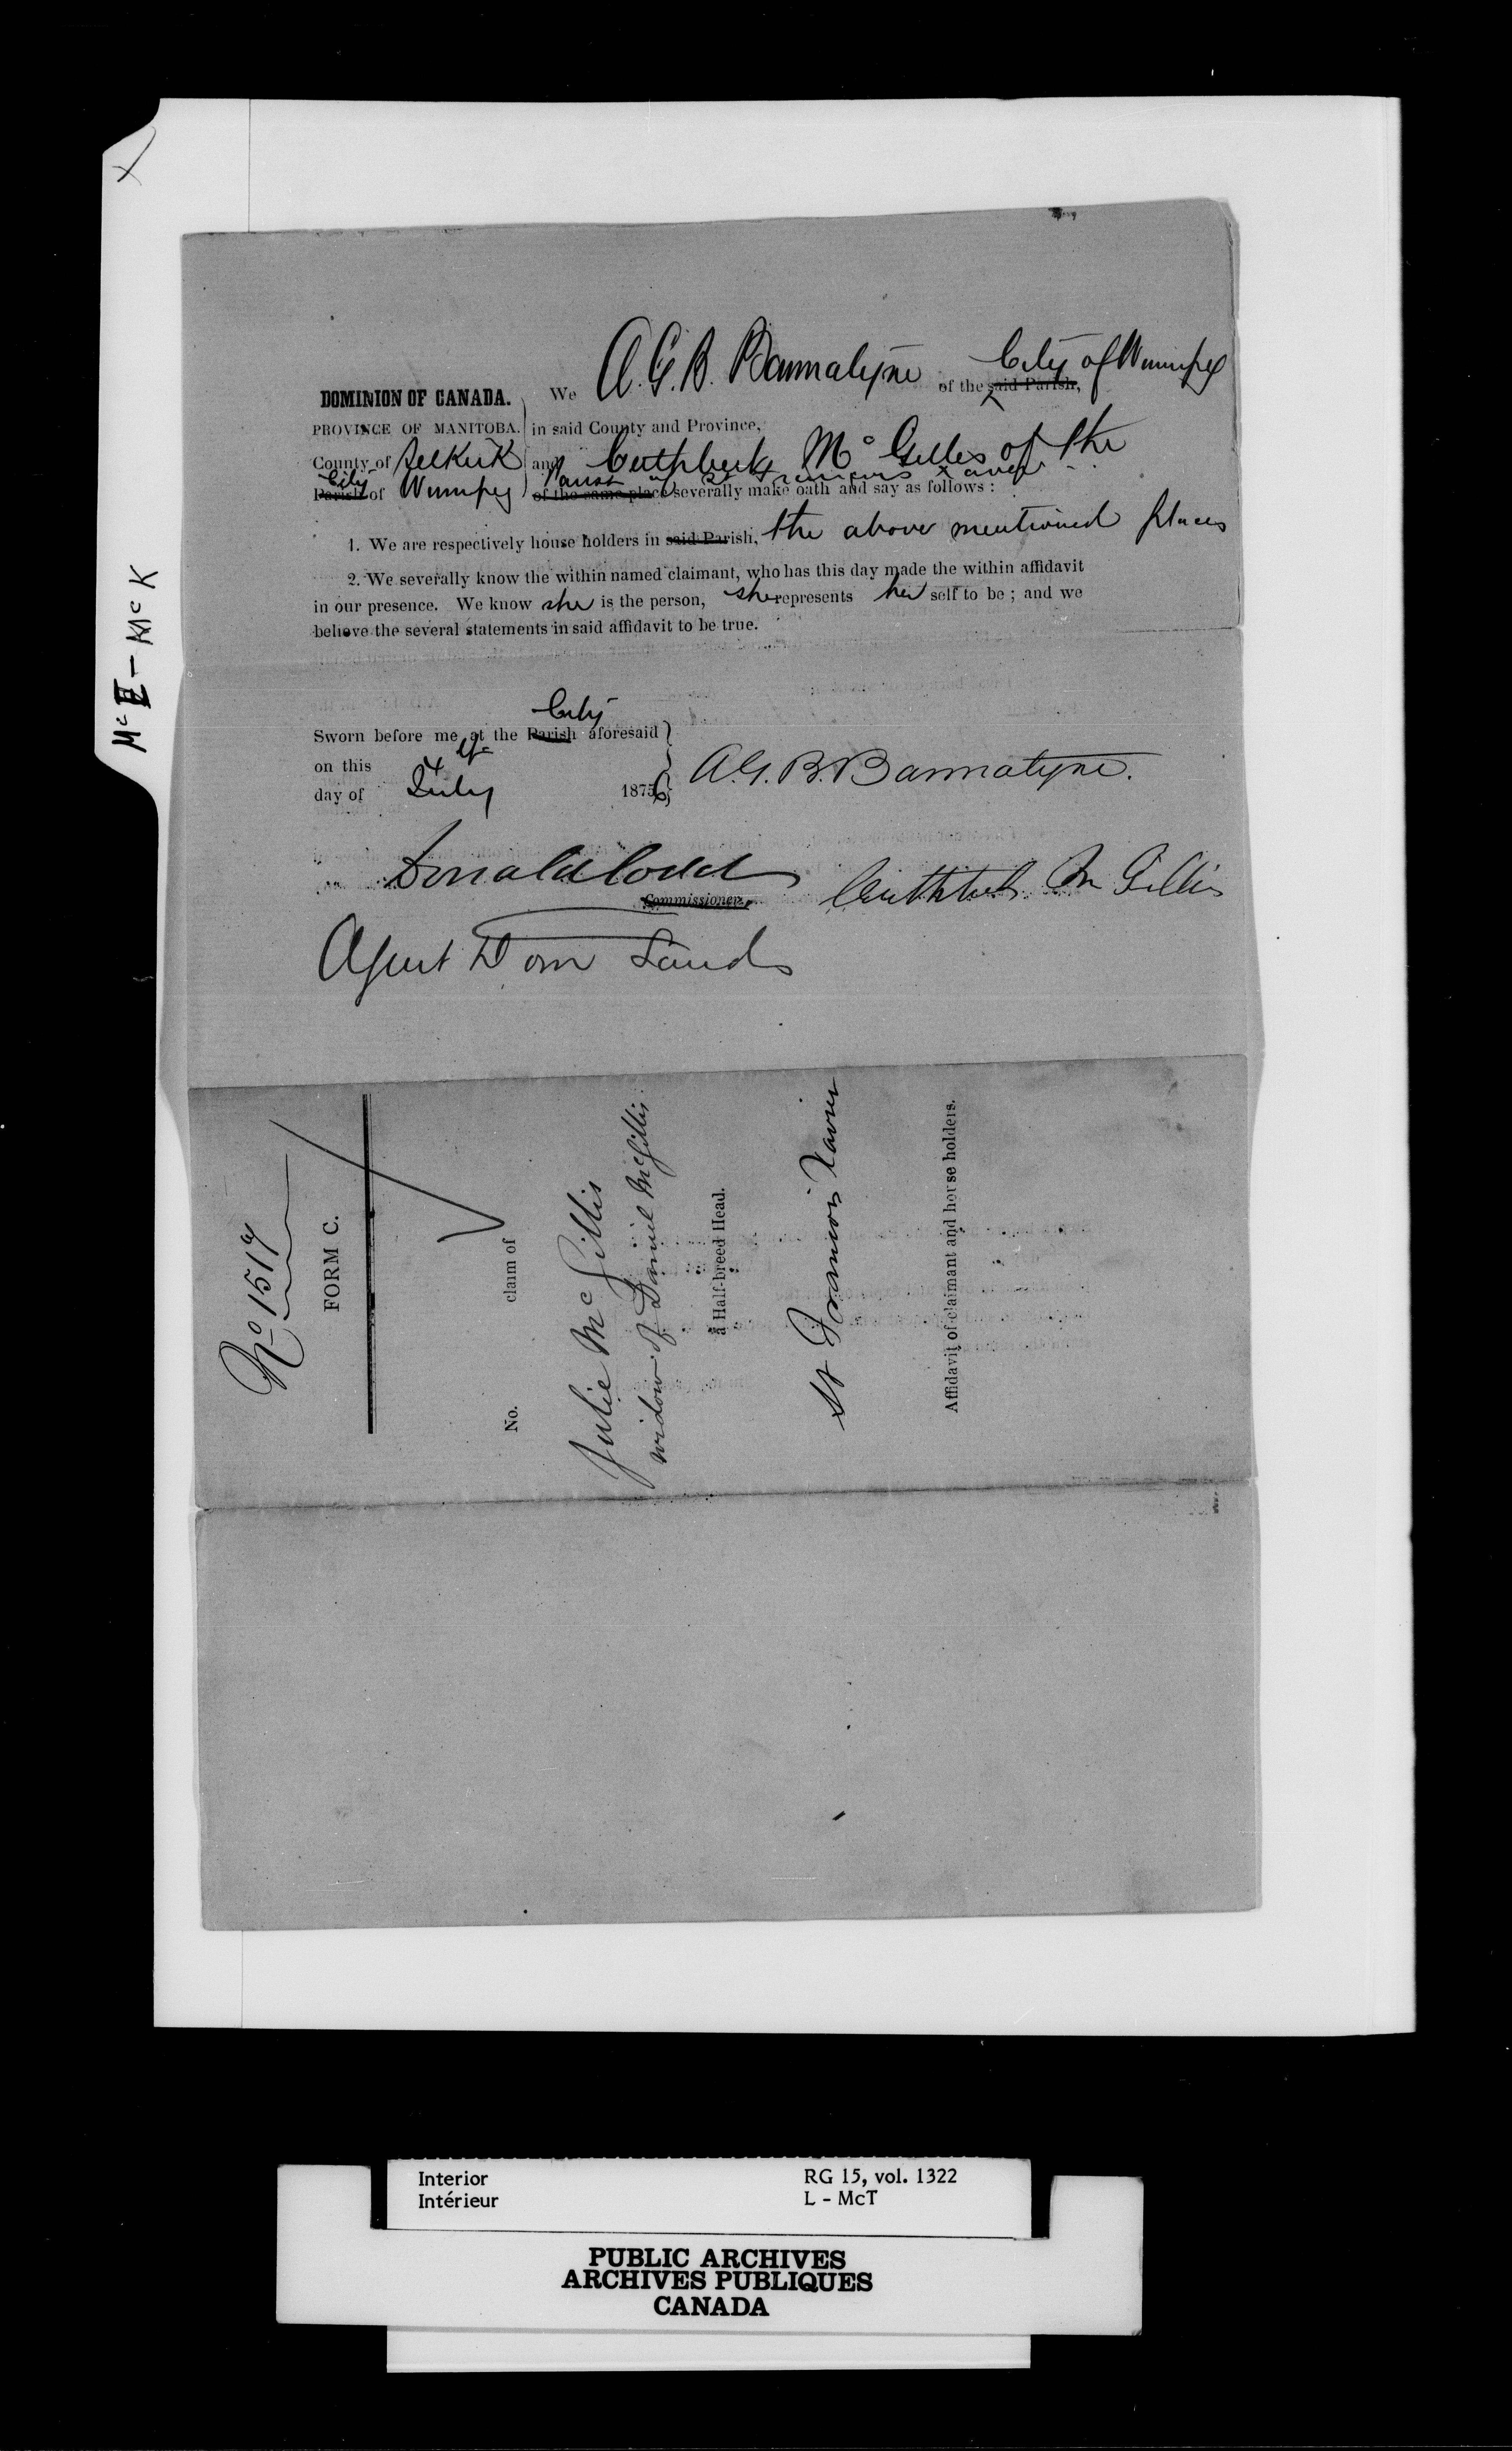 X
McE - McK
DOMINION OF CANADA.
PROVINCE OF MANITOBA.
County of Selkirk
City
Parish of Winnipeg
We A. G. B. Bannatyne of the said Parish, City of Winnipeg
in said County and Province,
and Cuthbert McGilles of the
Parish of St Francois Xavier
of the same place severally make oath and say as follows:
1. We are respectively house holders in said Parish, the above mentioned places
2. We severally know the within named claimant, who has this day made the within affidavit
in our presence. We know she is the person, she represents her self to be; and we
believe the several statements in said affidavit to be true.
City
Sworn before me at the Parish aforesaid
on this
day of July 1876
A. G. B. Bannatyne.
Donald Codd
Commissioner.
Cuthbert McGillis
Agent Dom Lands
No 1517
FORM C.
No. claim of
Julie McGillis
widow of Daniel McGillis
a Half-breed Head.
St Francois Xavier
Affidavit of claimant and house holders.
Interior
Intérieur
RG 15, vol. 1322
L - McT
PUBLIC ARCHIVES
ARCHIVES PUBLIQUES
CANADA